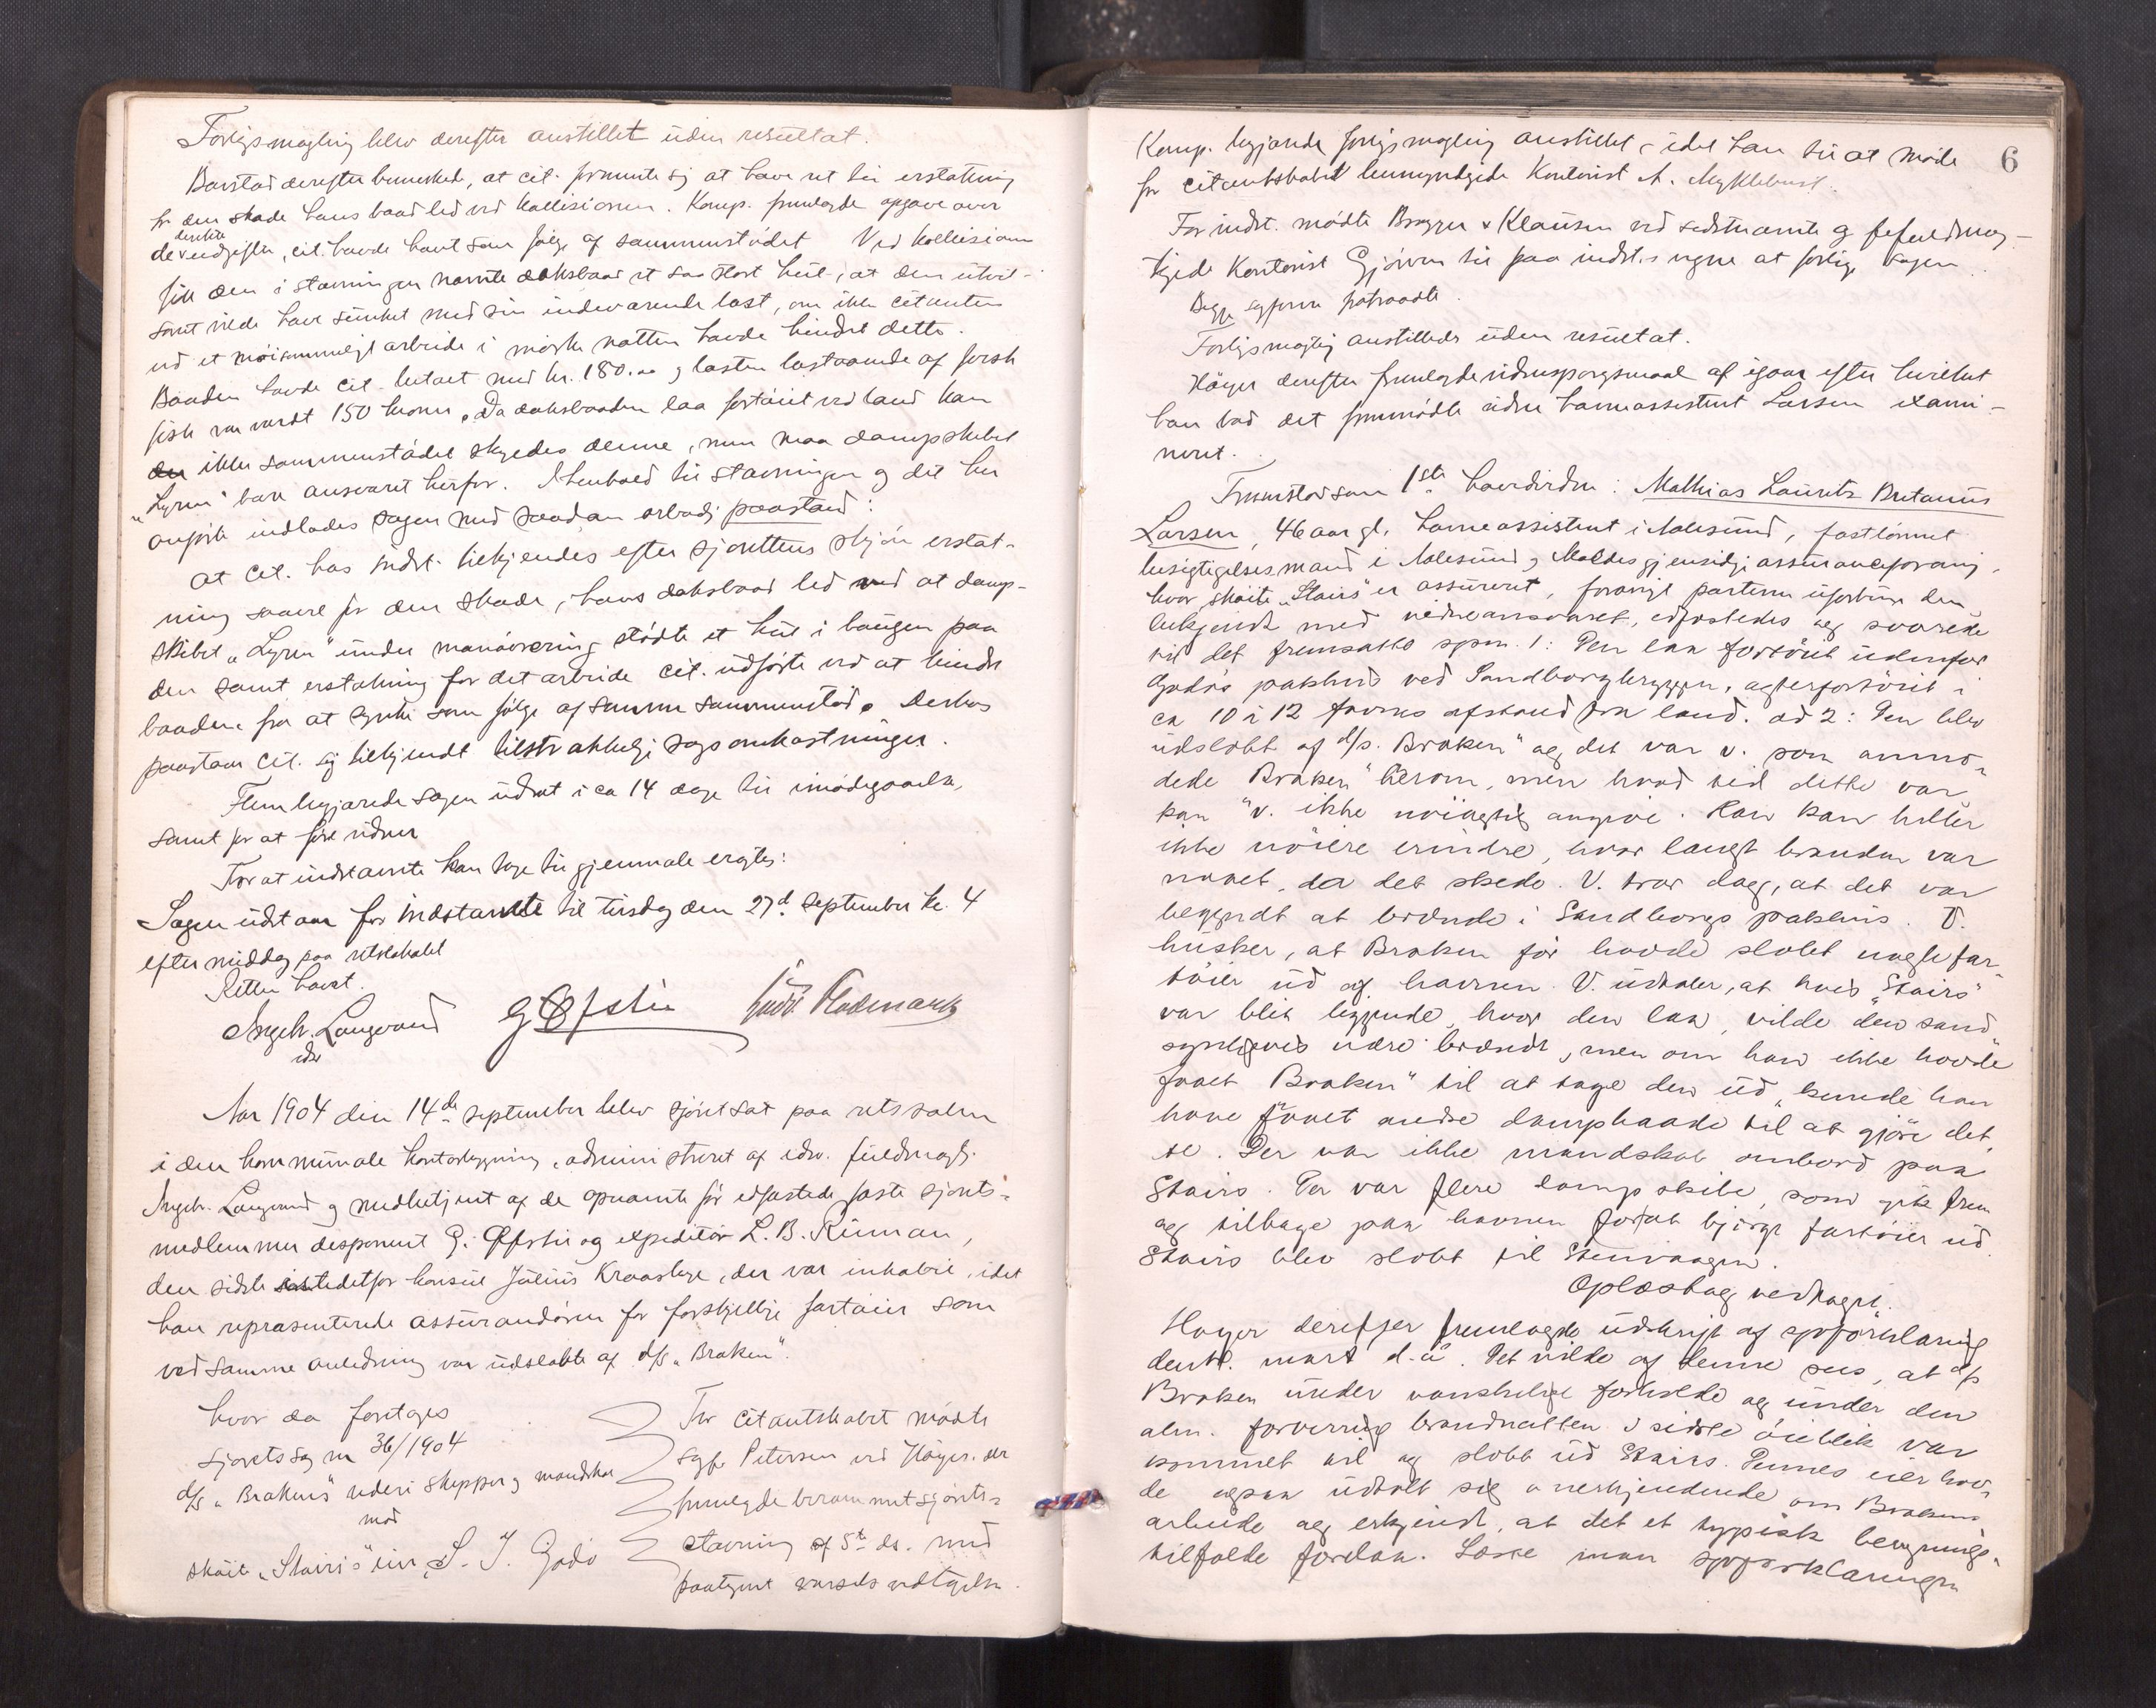 Forligsmægling blev derefter anstillet uden resultat.
Barstad derefter bemerked, at cit. formente sig at have ret til erstatning
for den skade hans baad led ved kollisionen. Komp. fremlagde opgave over
direkte
de udgifter, cit. havde havt som følge af sammenstødet Ved kollisionen
fik den i stævningen nævnte dæksbaad et saa stort hul, at den utvil-
somt vilde have sunket med sin indeværende last, om ikke citanten
ved et møisommeligt arbeide i mørke natten havde hindret dette.
Baaden havde cit. betalt med kr. 180.00 og lasten bestaaende af fersk
fisk var værdt 150 kroner. Da dæksbaaden laa fortøiet ved land kan
ikke sammenstødet skyldes denne, men maa dampskibet
"Lyren" bære ansvaret herfor. I henhold til stævningen og det her
anførte indlades sagen med saadan ærbødig paastand:
At cit. hos indst. tilkjendes efter sjørettens skjøn erstat-
ning saavel for den skade, hans dæksbaad led ved at damp-
skibet "Lyren" under manøvrering stødte et hul i baugen paa
den samt erstatning for det arbeide cit. udførte ved at hindre
baaden fra at synke som følge af samme sammenstød. Derhos
paastaar cit. sig tilkjendt tilstrækkelige sagsomkostninger.
Flem begjærede sagen udsat i ca 14 dage til imødegaaelse,
samt for at føre vidner
For at indstævnte kan tage til gjenmæle eragtes:
Sagen udstaar for indstævnte til tirsdag den 27d september kl. 4
eftermiddag paa retslokalet
Retten hævet.
Ingebr. Langvand G Øfstie Ludv. Flodmark
edsv
Aar 1904 den 14de september blev sjøret sat paa retssalen
i den kommunale kontorbygning, administreret af edsv. fuldmægtig
Ingebr. Langvand og medbetjent af de opnævnte før edfæstede faste sjørets-
medlemmer disponent G. Øfstie og expeditør L. B. Riiman,
den sidste istedetfor konsul Julius Kraastage, der var inhabil, idet
han repræsenterede assurandøren for forskjellige fartøier som
ved samme anledning var udslæbte af d/s "Braken".
hvor da foretages
sjøretssag nr 36/1904
d/s "Braken"s rederi skipper og mandskab
mod
skøite "Stairs" eier, S. J. Godø
For citantskabet mødte
sagf. Petersen ved Høyer. der
fremlagde berammet sjørets-
stævning af 5te ds. med
paategnet varsels vedtagelse.
6
Komp. begjærede forligsmægling anstillet, idet han til at møde
for citantskabet bemyndigede Kontorist A. Myklebust.
For indst. mødte Brager & Klausen ved sidstnævnte og befuldmæg-
tigede Kontorist Gjørven til paa indst.s vegne at forlige sagen.
Begge sagførere fratraadte.
Forligsmægling anstilledes uden resultat.
Høyer derefter fremlagde vidnespørgsmaal af igaar efter hvilket
han bad det fremmødte vidne havneassistent Larsen exami-
neret.
Fremstod som 1ste hovedvidne: Mathias Lauritz Bretanus
Larsen, 46 aar gl. havneassistent i Aalesund, fastlønnet
besigtigelsesmand i Aalesund og Moldes gjensidige assuranceforening,
hvor skøite "Stairs" er assureret, forøvrigt parterne uforbunden,
bekjendt med vidneansvaret, edfæstedes og svarede
til det fremsatte spm. 1: Den laa fortøiet udenfor
Godøs pakhus ved Sandborgbryggen, agterfortøiet i
ca 10 à 12 favnes afstand fra land. ad 2: Den blev
udslæbt af d/s. "Braken" og det var v. som anmo-
dede "Braken" herom, men hvad tid dette var,
kan v. ikke nøiagtig angive. Han kan heller
ikke nøiere erindre, hvor langt branden var
naaet, da det skede. V. tror dog, at det var
begyndt at brænde i Sandborgs pakhus. V.
husker, at Braken før havde slæbt nogle far-
tøier ud af havnen. V. udtaler, at hvis "Stairs"
var blit liggende, hvor den laa, vilde den sand-
synligvis være brændt, men om han ikke havde
faaet "Braken" til at tage den ud, kunde han
have faaet andre dampbaade til at gjøre det-
te. Der var ikke mandskab ombord paa
Stairs. Der var flere dampskibe, som gik frem
og tilbage paa havnen forat bjerge fartøier ud.
Stairs blev slæbt til Stenvaagen.
Oplæst og vedtaget.
Høyer derefter fremlagde udskrift af sjøforklaring
dent. mars d.a. Det vilde af denne sees, at d/s
Braken under vanskelige forholde og under den
alm. forvirring brandnatten i sidste øieblik var
kommet til og slæbt ud Stairs. Dennes eier hav-
de ogsaa udtalt sig anerkjendende om Brakens
arbeide og erkjendt, at det et typisk bergnings-
tilfælde forelaa. Læser man sjøforklaringen